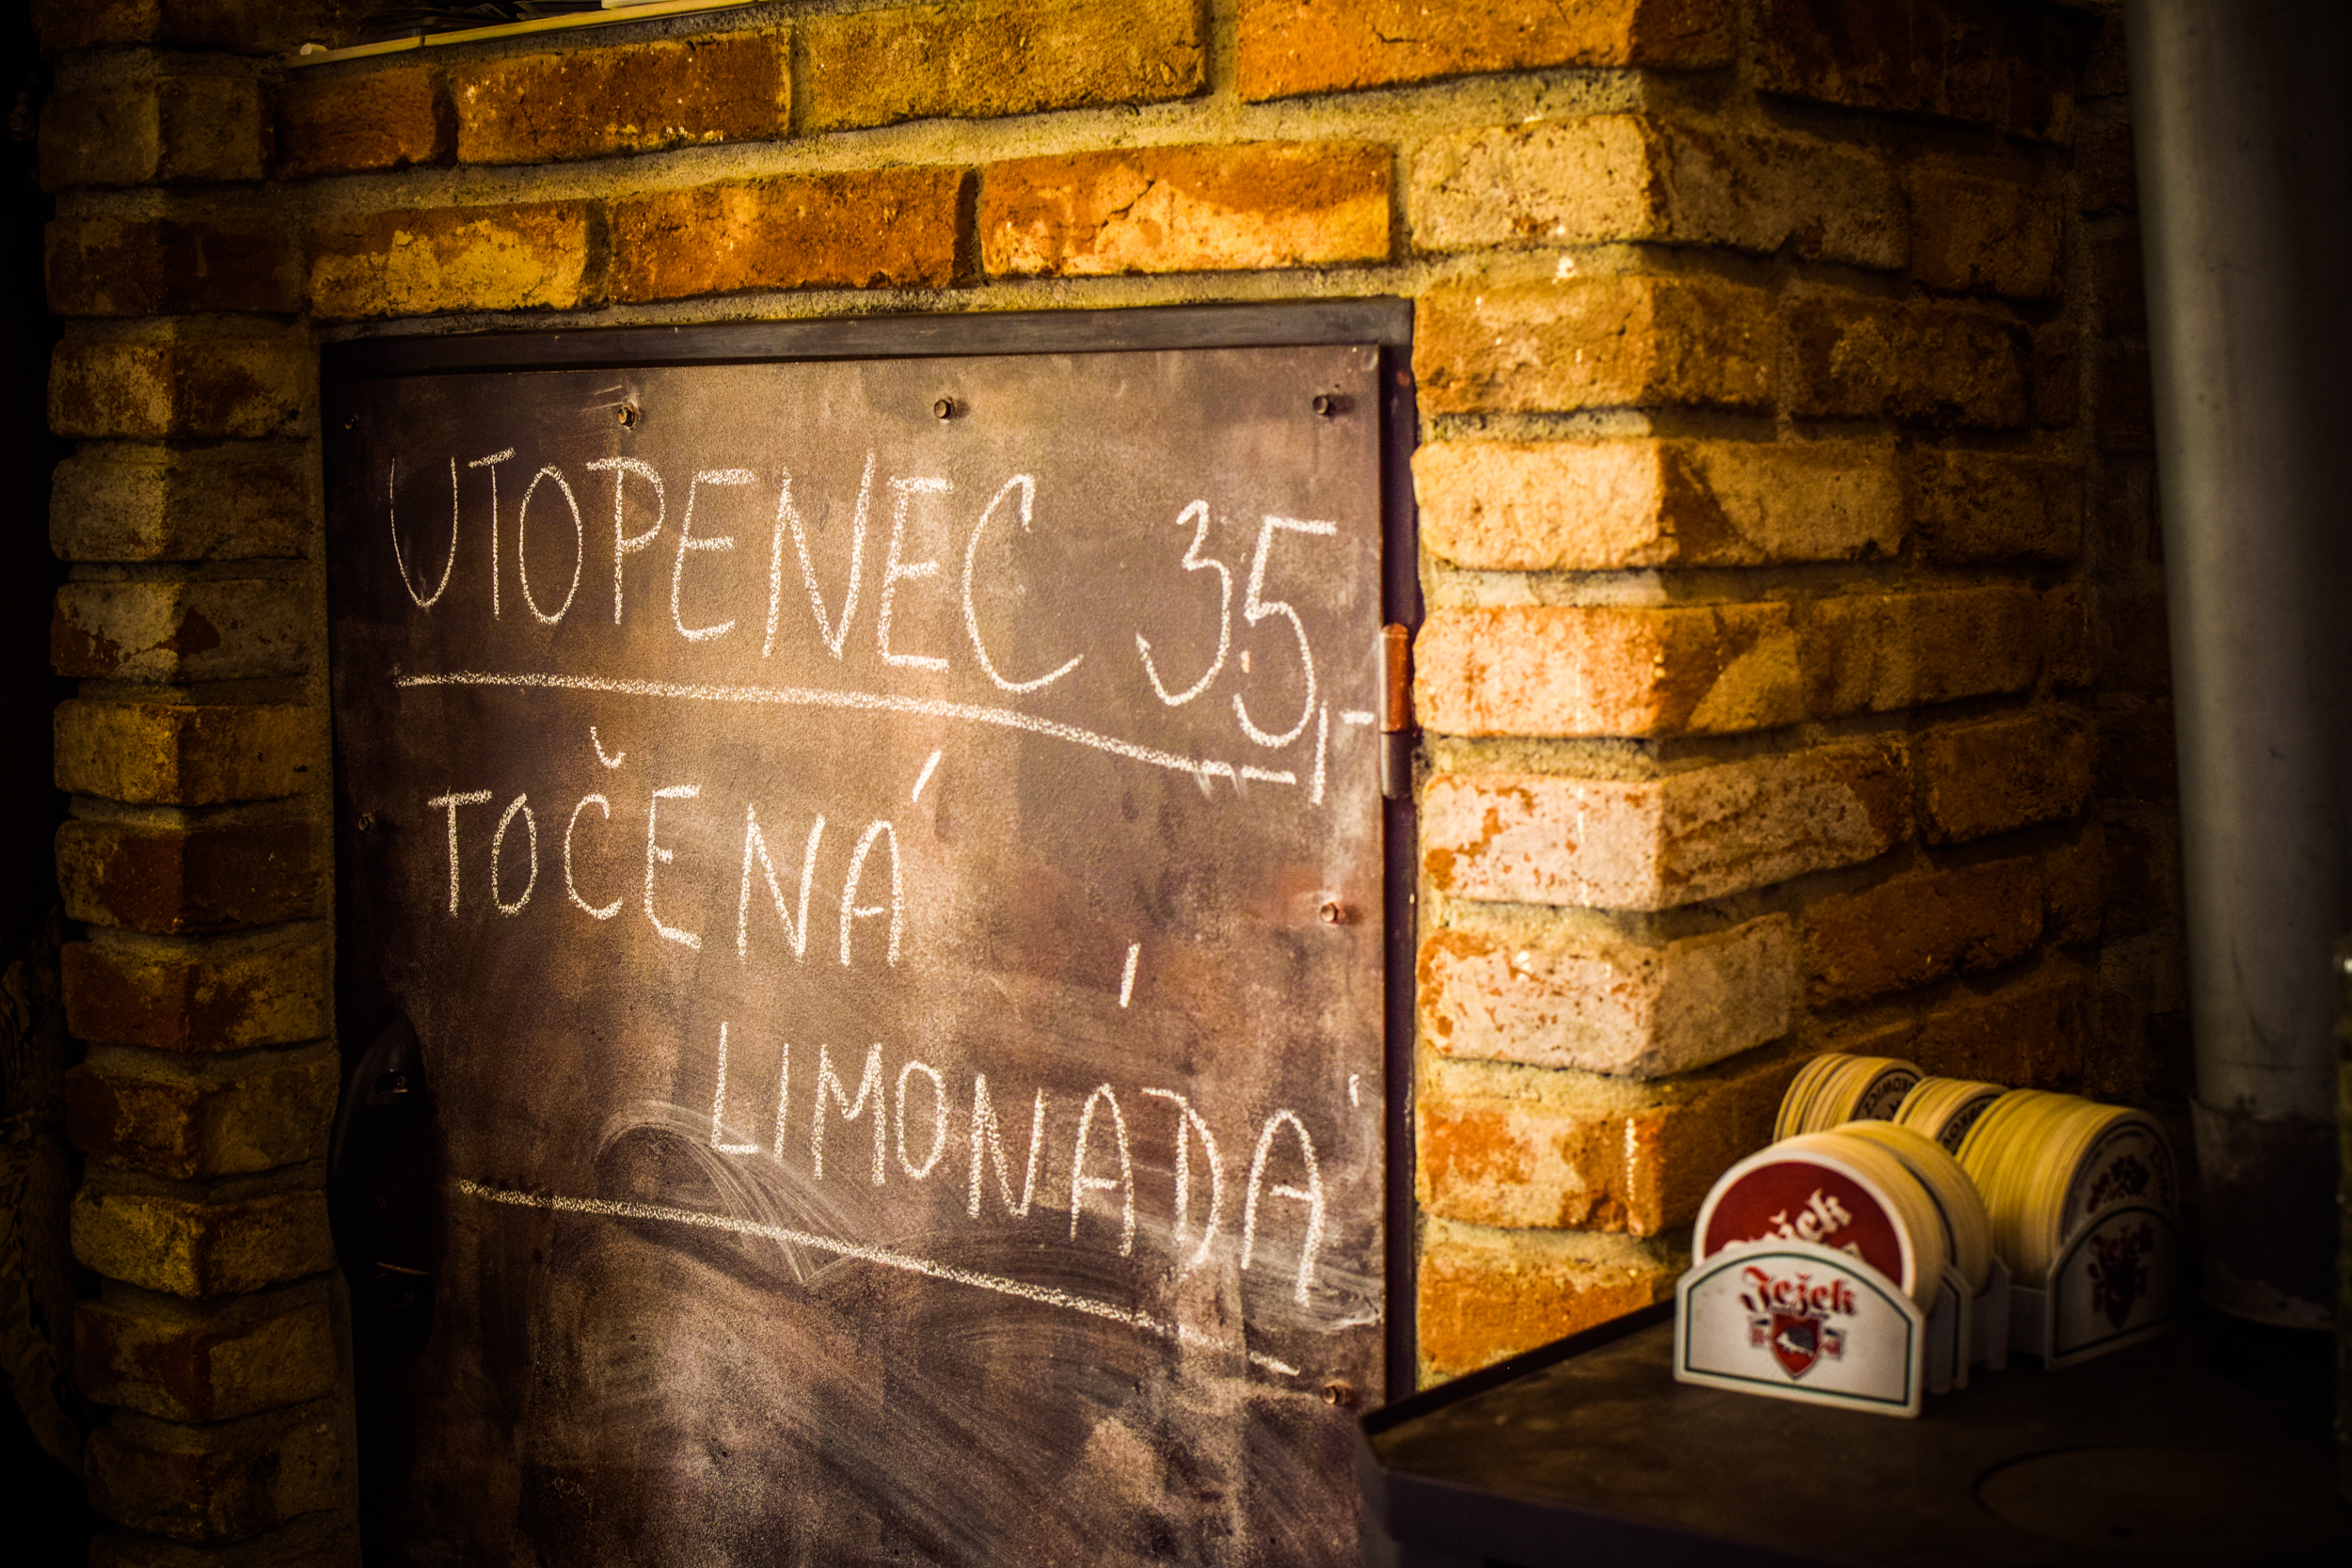 UTOPENEC 35,-
TOČENÁ
LIMONÁDA
Ježek
Ježek